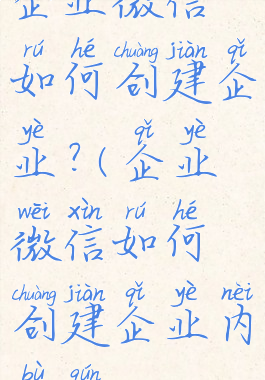 企业微信
rú hé chuàng jiàn qǐ
如何创建企
yè qǐ yè
业？（企业
wēi xìn rú hé
微信如何
chuàng jiàn qǐ yè nèi
创建企业内
bù qún